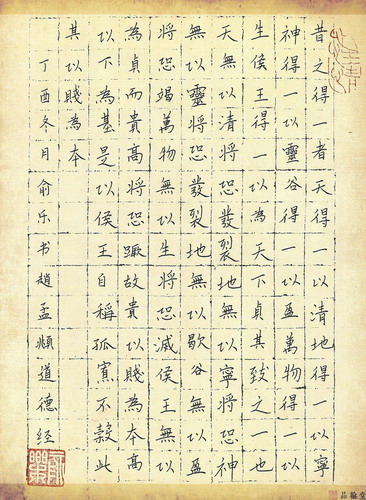 昔之得一者天得一以清地得一以寧
神得一以靈谷得一以盈萬物得一以
生侯王得一以為天下貞其致之一也
天無以清將恐發裂地無以寧將恐神
無以靈將恐發裂地無以歇谷無以盈
將恐竭萬物無以生將恐滅侯王無以
為貞而貴高將恐蹶故貴以賤為本高
以下為基是以侯王自稱孤寡不榖此
其以賤為本
丁酉冬月俞乐书趙孟頫道德经
品翰堂